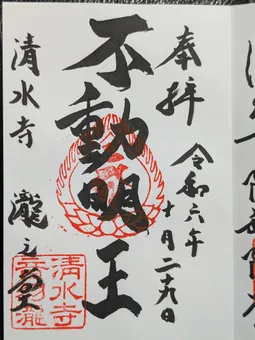 奉拝
令和六年
十月二十九日
不動明王
清水寺
瀧之堂
清水寺
音羽瀧